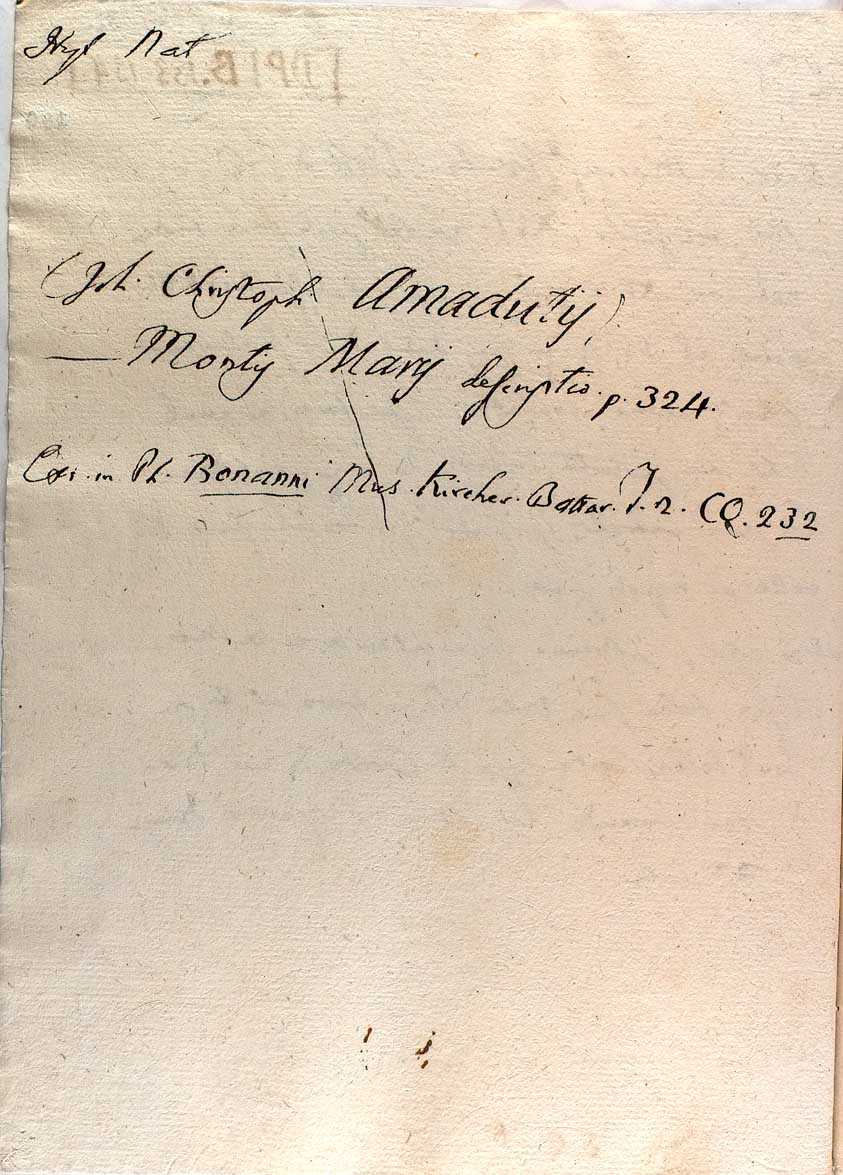 Hist Nat
(Joh. Christoph. Amadutij)
— Montis Marij descriptio. p. 324.
in Ph. Bonanni Mus. Kircher. Battar. T. 2. CQ. 232